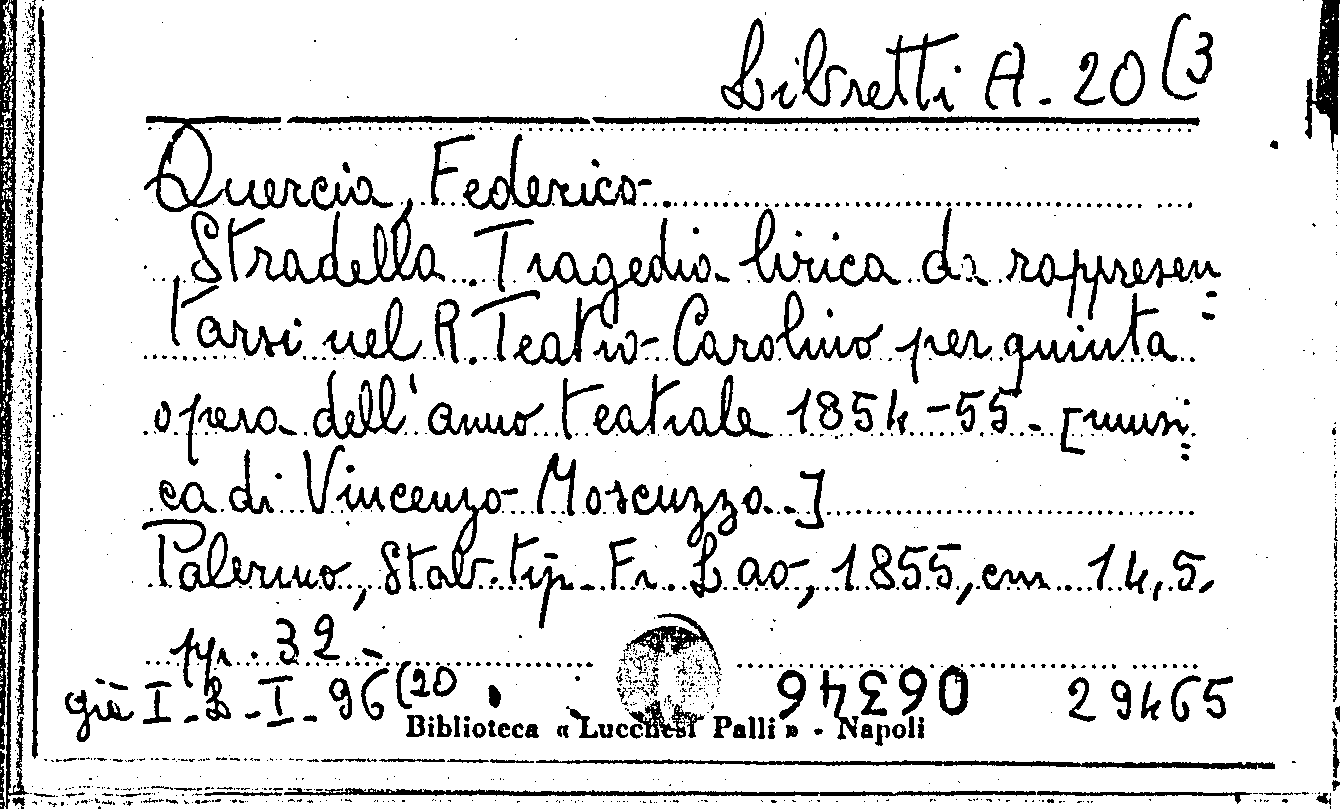 Libretti A. 20 (3
Quercia, Federico.
Stradella. Tragedia lirica da rappresen=
tarsi nel R. Teatro Carolino per quinta
opera dell'anno teatrale 1854-55. [musi=
ca di Vincenzo Moscuzzo.]
Palermo, Stab. tip. Fr. Lao, 1855, cm. 14,5,
pp. 32.
già I-B-I-96(20 06346 29465
Biblioteca « Lucchesi Palli » - Napoli